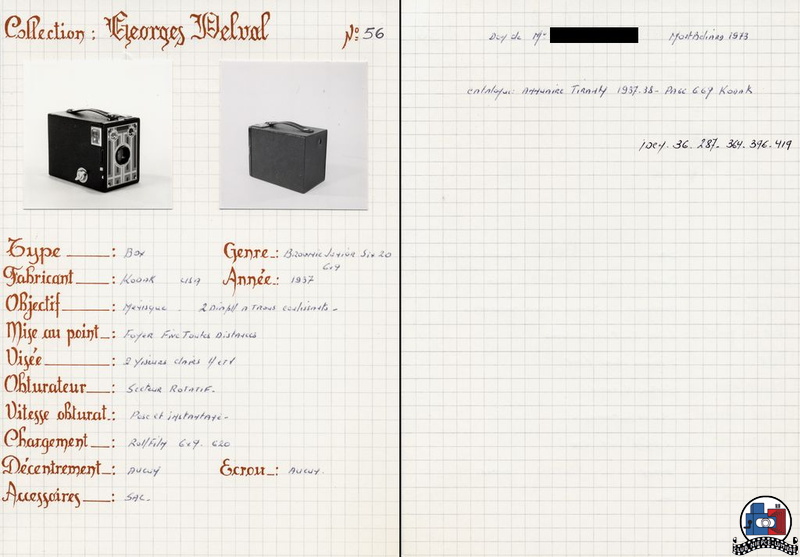 Collection : Georges Delval
N° 56
Type : Box
Genre : Brownie Junior Six 20
6x9
Fabricant : Kodak USA
Année : 1937
Objectif : Ménisque - 2 Diaph à Trous coulissants -
Mise au point : Foyer Fixe Toutes Distances
Visée : 2 Viseurs clairs H et V
Obturateur : Secteur Rotatif -
Vitesse obturat : Pose et instantané -
Chargement : Rollfilm 6x9. 620
Décentrement : Aucun
Ecrou : Aucun -
Accessoires : SAC -
Don de Mr
1973
catalogue: Annuaire Tiranty 1937.38 - Page 669 Kodak
36. 287. 364. 396. 419